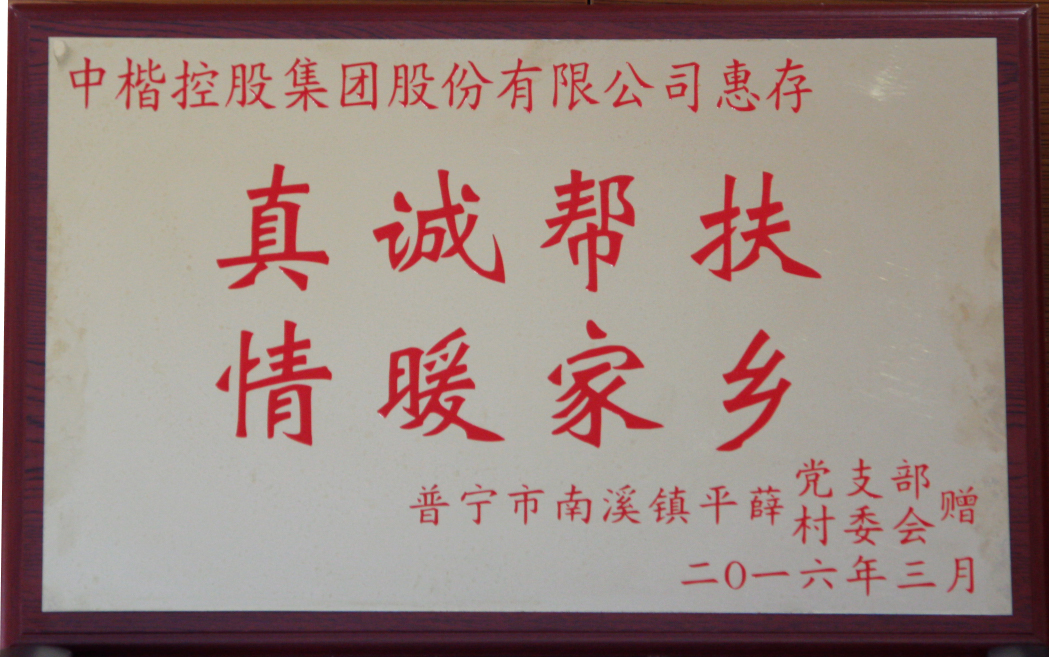 中楷控股集团股份有限公司惠存
真诚帮扶
情暖家乡
普宁市南溪镇平薛党支部村委会赠
二〇一六年三月